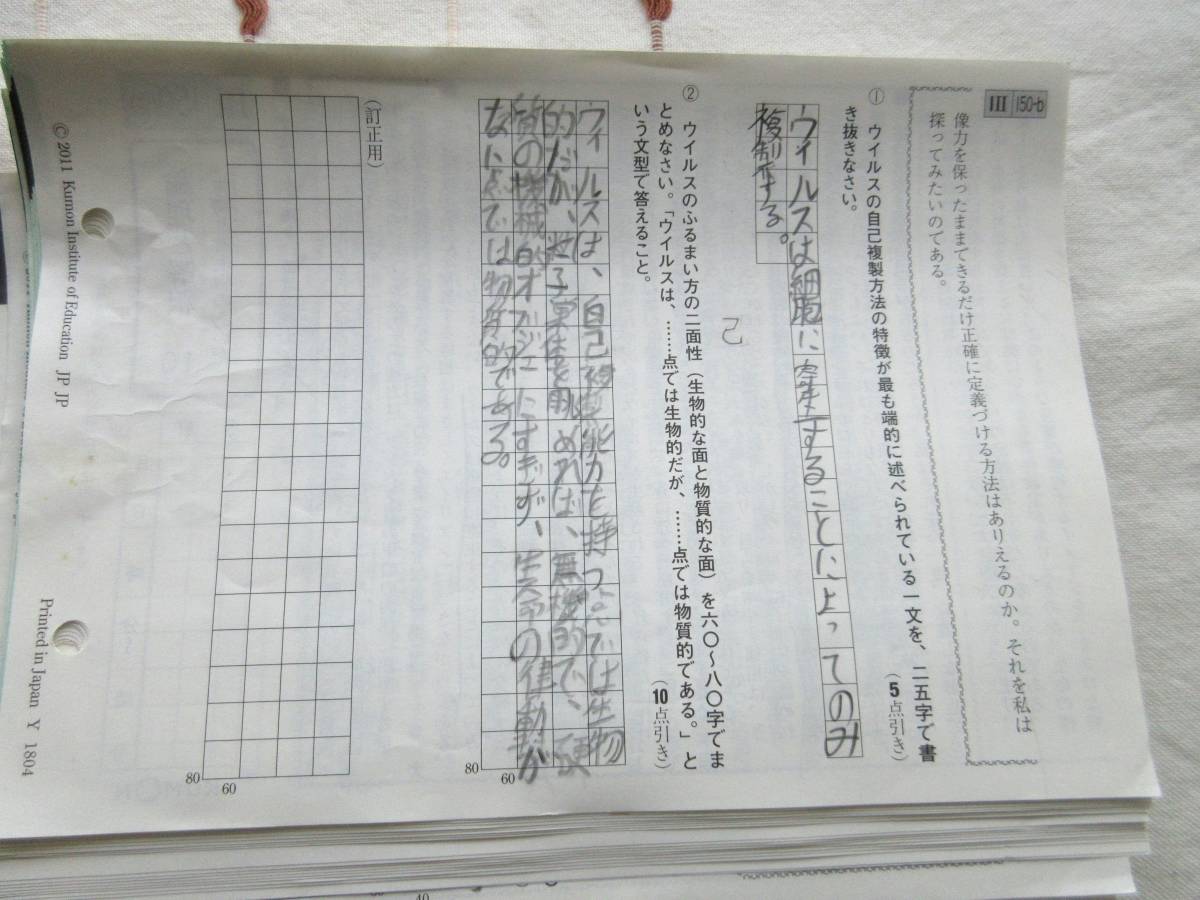 III 150-b
像力を保ったままできるだけ正確に定義づける方法はありえるのか。それを私は
探ってみたいのである。
① ウイルスの自己複製方法の特徴が最も端的に述べられている一文を、二五字で書
き抜きなさい。
(5点引き)
ウイルスは細胞に寄生することによってのみ
複製する。
己
② ウイルスのふるまい方の二面性（生物的な面と物質的な面）を六〇～八〇字でま
とめなさい。「ウイルスは、……点では生物的だが、……点では物質的である。」と
いう文型で答えること。
(10点引き)
ウィルスは、自己複製能力を持つ点では生物
的だが、粒子単体を眺めれば、無機的で、硬
質の機械的オブジェにすぎず、生命の律動が
ない点では物質的である。
80
60
(訂正用)
80
60
© 2011 Kumon Institute of Education JP JP
Printed in Japan Y 1804
40